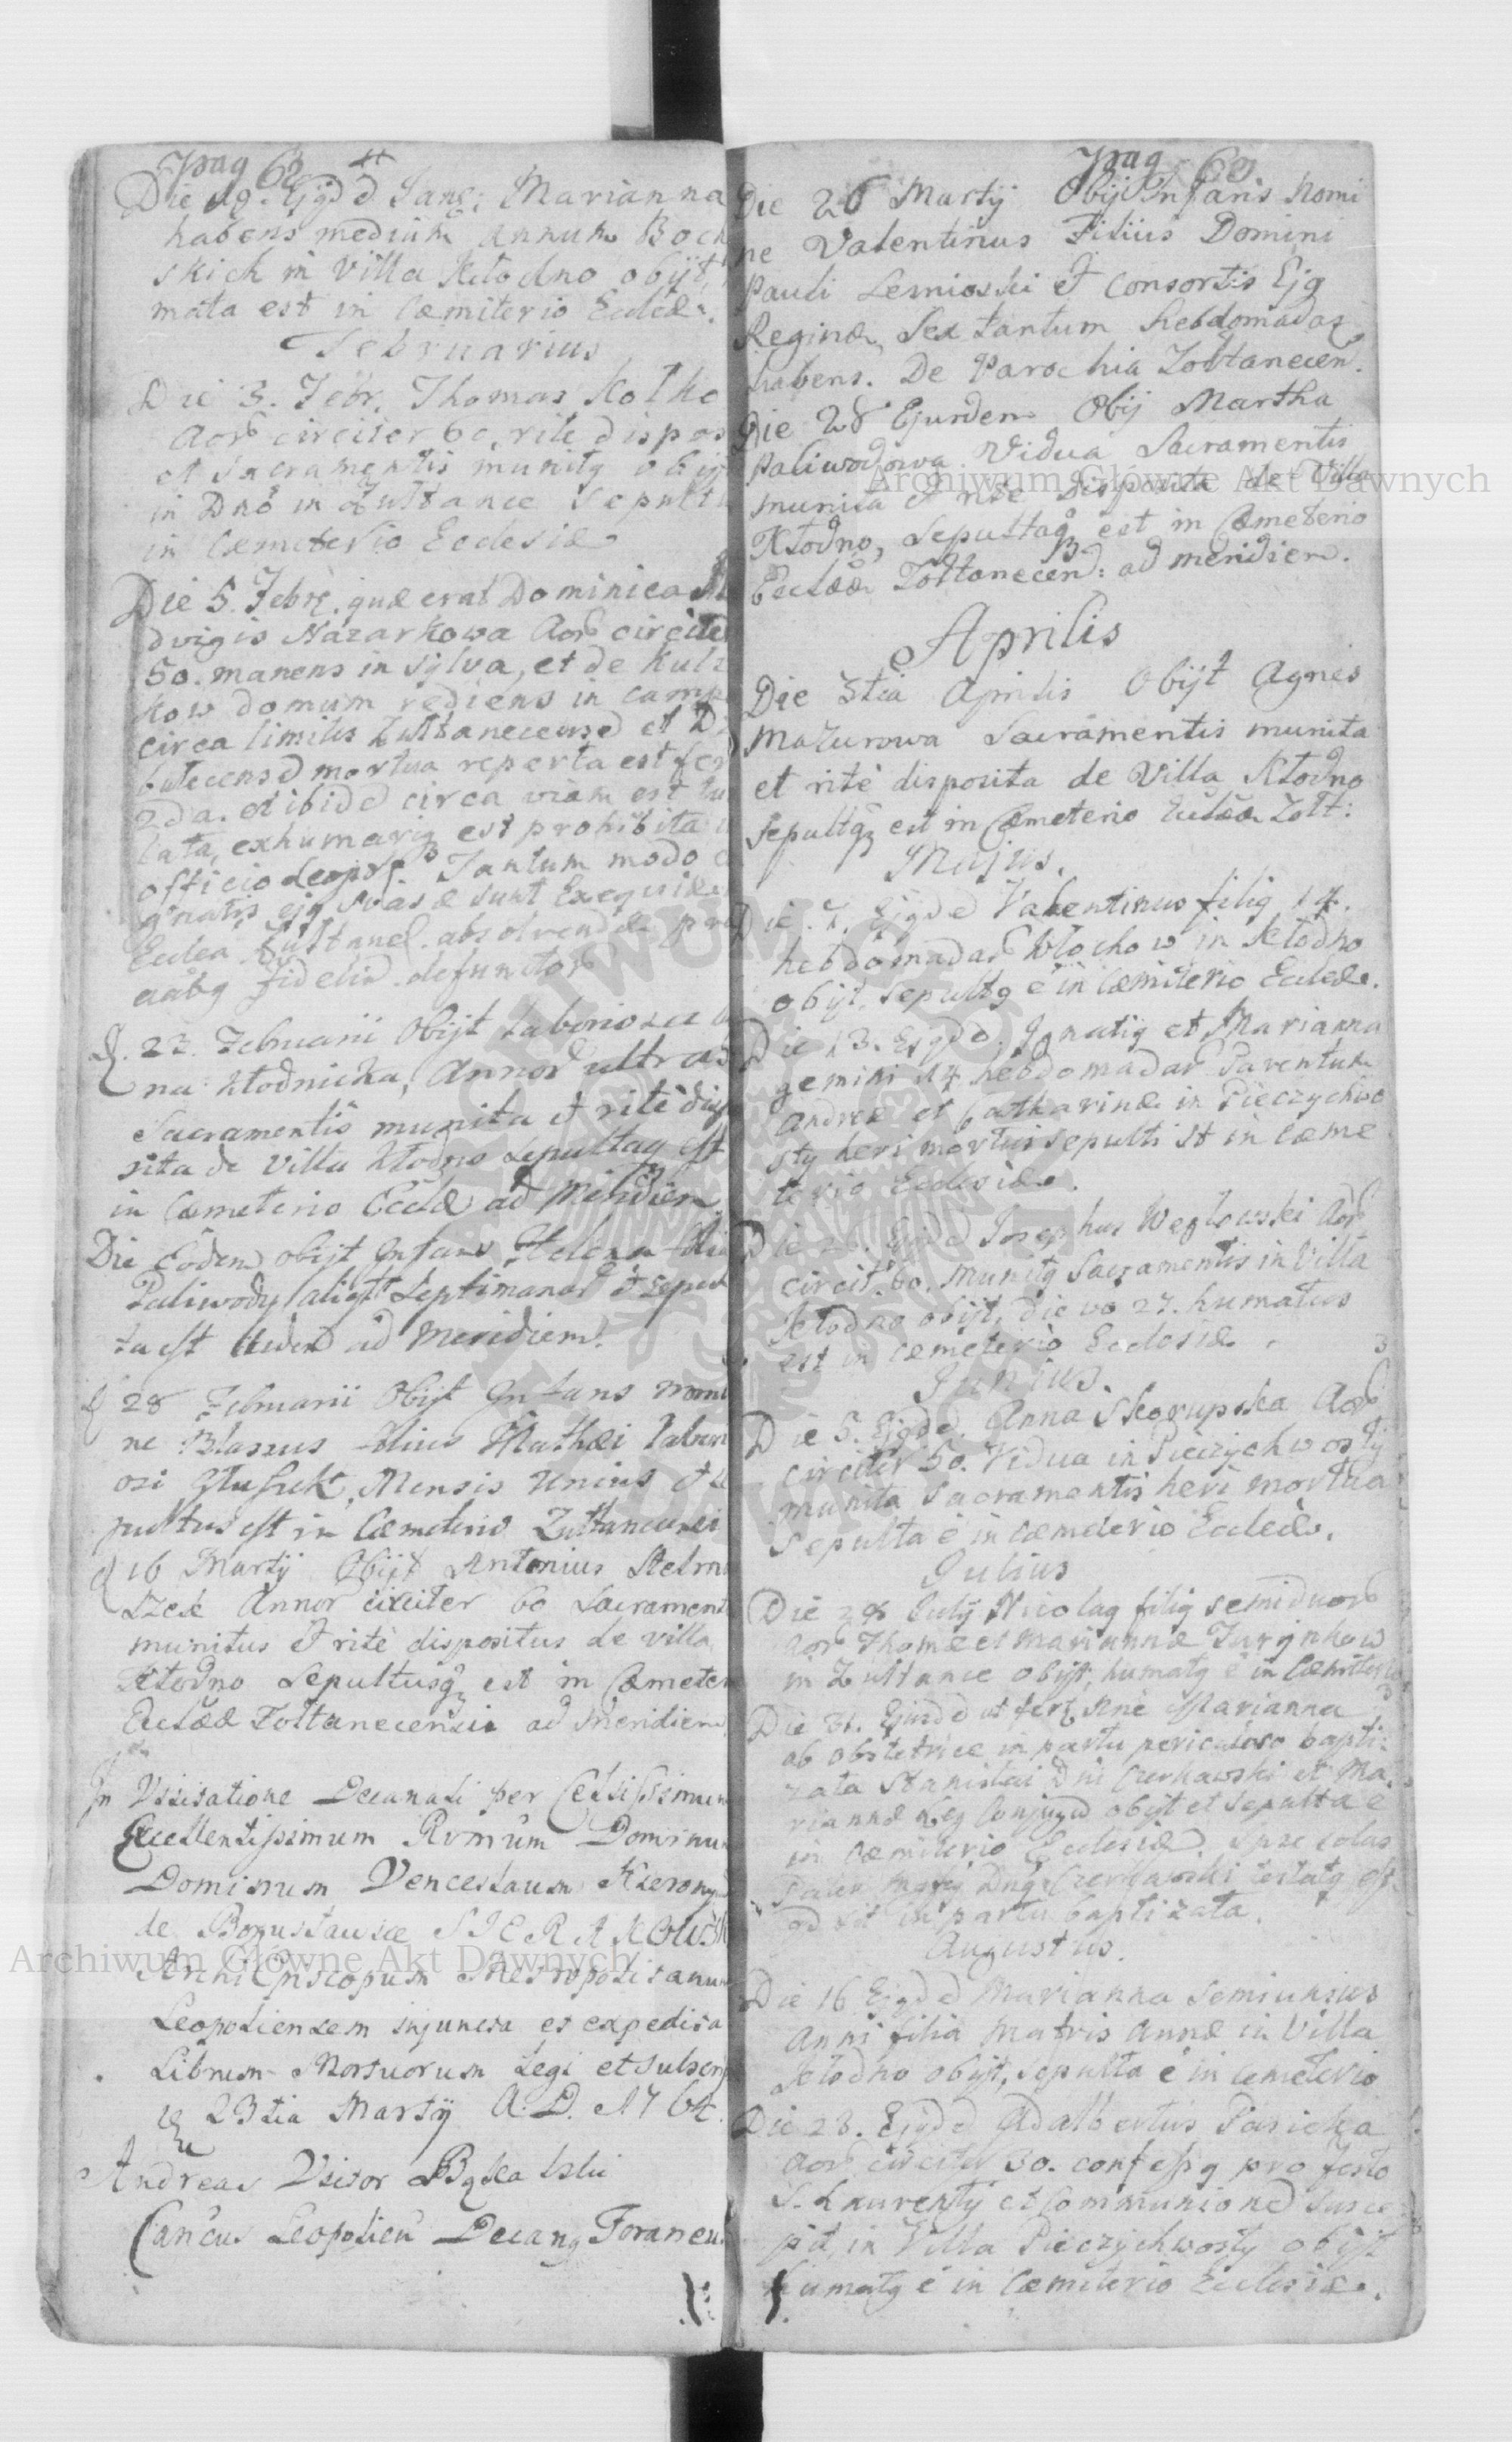 Pag 62
Die 19. Ejgd d Janr: Marianna
habens medium annum Boch
skich in Villa Kłodno obijt,
mata est in Cæmiterio Ecclæ.
Februarius
Die 3. Febr. Thomas Kotko
Aor circiter 60, rite dispos
et Sacramentis munitg obijt
in Dno in Zułtance Sepultu
in Cæmeterio Ecclesiæ
Die 5. Febr. quæ erat Dominica
dvigis Nazarkowa Aor circiter
50. manens in sylva, et de Kuli
kow domum rediens in camp
circa limites Zułtanecense et D
butecensd mortua reperta est fer
2da. et ibidd circa viam est tu
lata, exhumariq est prohibita
officio Tantum modo
gnatis ejg suasæ sunt Exequiæ
Eccles Zułtanec. absolvendæ pro
aabg fidelid. defunctor
D. 22. Februarii Obijt Laboriosa
na Kłodnicka, Annor ultra
Sacramentis munita et ritè dispo
sita de Villa Kłodno Sepultaq est
in Cæmeterio Ecclæ ad Meridiem
Die Eodem obijt Infans Helena fili
Paliwody aliqt Septimanar et sepul
ta est ad Meridiem.
D 28 Februarii Obijt Infans nomi
ne Blasius filius Mathæi Labori
osi Głusick, Mensis Unius et se
pultus est in Cæmeterio Zułtanecensi
D 16 Martij Obijt Antonius Stelma
szek Annor circiter 60 Sacrament
munitus et ritè dispositus de villa
Kłodno Sepultusq est in Cæmeter
Eccläæ Żołtanecensis ad Meridiem
In Visitatione Decanali per Celsissimum
Excellentissimum Rvmum Dominum
Dominum Venceslaum Hierony
de Bogusławice SIERAKOWSK
ArchiEpiscopum Metropolitanum
Leopoliensem injuncta et expedita
Librum Mortuorum Legi et subscrip
23tia Martij A. D. 1764.
Andreas Visor
Cancus Leopolien Decang Foraneus
Pag 63
Die 26 Martij Obijt Infans Nomi
ne Valentinus Filius Domini
Pauli Lesnioski et Consortis Ejg
Reginæ, Sex tantum hebdomadas
habens. De Parochia Żołtanecen.
Die 28 Ejusdem Obij Martha
Paliwodowa Vidua Sacramentis
munita et rite disposita de Villa
Kłodno, Sepultaq est in Cæmeterio
Ecclææ Żołtanecen: ad meridiem.
Aprilis
Die 3tia Aprilis Obijt Agnes
Mazurowa Sacramentis munita
et ritè disposita de Villa Kłodno
Sepultaq est in Cæmeterio Ecclææ Żołt:
Majus.
Die 7. Ejgd d Valentinus filig 14.
hebdomadar Włochow in Kłodno
obijt, Sepultg e in Cæmiterio Ecclæ.
Die 13. Ejgdd. Ignatig et Marianna
gemini 14 hebdomadar Parentum
Andreæ et Catharinæ in Pieczychwo
sty heri mortui sepulti st in Cæme
terio Ecclesiæ.
Die 26. Ejgd d Josephus Węglowski Aor
circit. 60. munitg Sacramentis in Villa
Kłodno obijt, die vo 27. humatus
est in cæmeterio Ecclesiæ.
Junius.
Die 5. Ejgdd. Anna Skorupska Aor
circiter 50. Vidua in Pieczychwosty
munita Sacramentis heri mortua
Sepulta e in Cæmeterio Ecclæ.
Julius
Die 28 Julij Nicolag filig semiduor
Aor Thomæ et Mariannæ Jurynkow
in Zułtance obijt, humatg e in Cæmiterio
Die 31. Ejusdd ut fert Marianna
ab obstetrice in partu periculoso bapti
zata Stanislai Dni Czerkawski et Ma
riannæ Leg Conjugu obijt et Sepulta e
in Cæmiterio Ecclesiæ. Ipse solus
Pater Dng Czerkawski testatg est
qd sit in partu baptizata.
Augustus.
Die 16 Ejgdd Marianna Semiunius
Anni filia Matris Annæ in Villa
Kłodno obijt, Sepulta e in Cemeterio
Die 23. Ejgdd Adalbertus Pasieka
Aor circiter 30. confessg pro festo
S. Laurentij et Communioned susce
pit, in Villa Pieczychwosty obijt
humatg e in Cæmiterio Ecclesiæ.
Archiwum Główne Akt Dawnych
Archiwum Główne Akt Dawnych